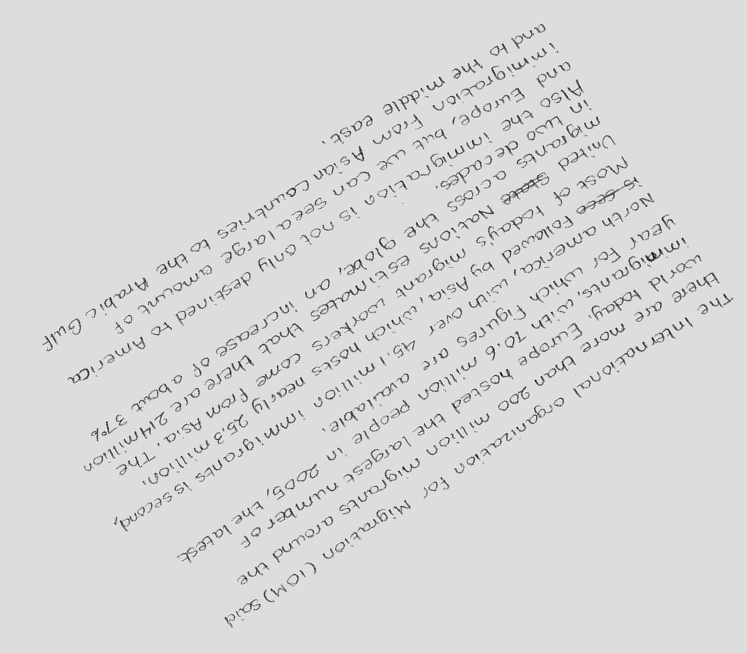 The International organization for Migration (IOM) said
there are more than 200 million migrants around the
world today. Europe hosted the largest number of
immigrants, with 70.6 million people in 2005, the latest
year for which figures are available.
North america, with over 45.1 million immigrants is second,
is seco Followed by Asia, which hosts nearly 25.3 million.
Most of today's migrant workers come from Asia. The
United state Nations estimates that there are 214 million
migrants across the globe, an increase of about 37%
in two decades.
Also the immigration is not only destined to America
and Europe, but we can see a large amount of
immigration From Asian countries to the Arabic Gulf
and to the middle east.